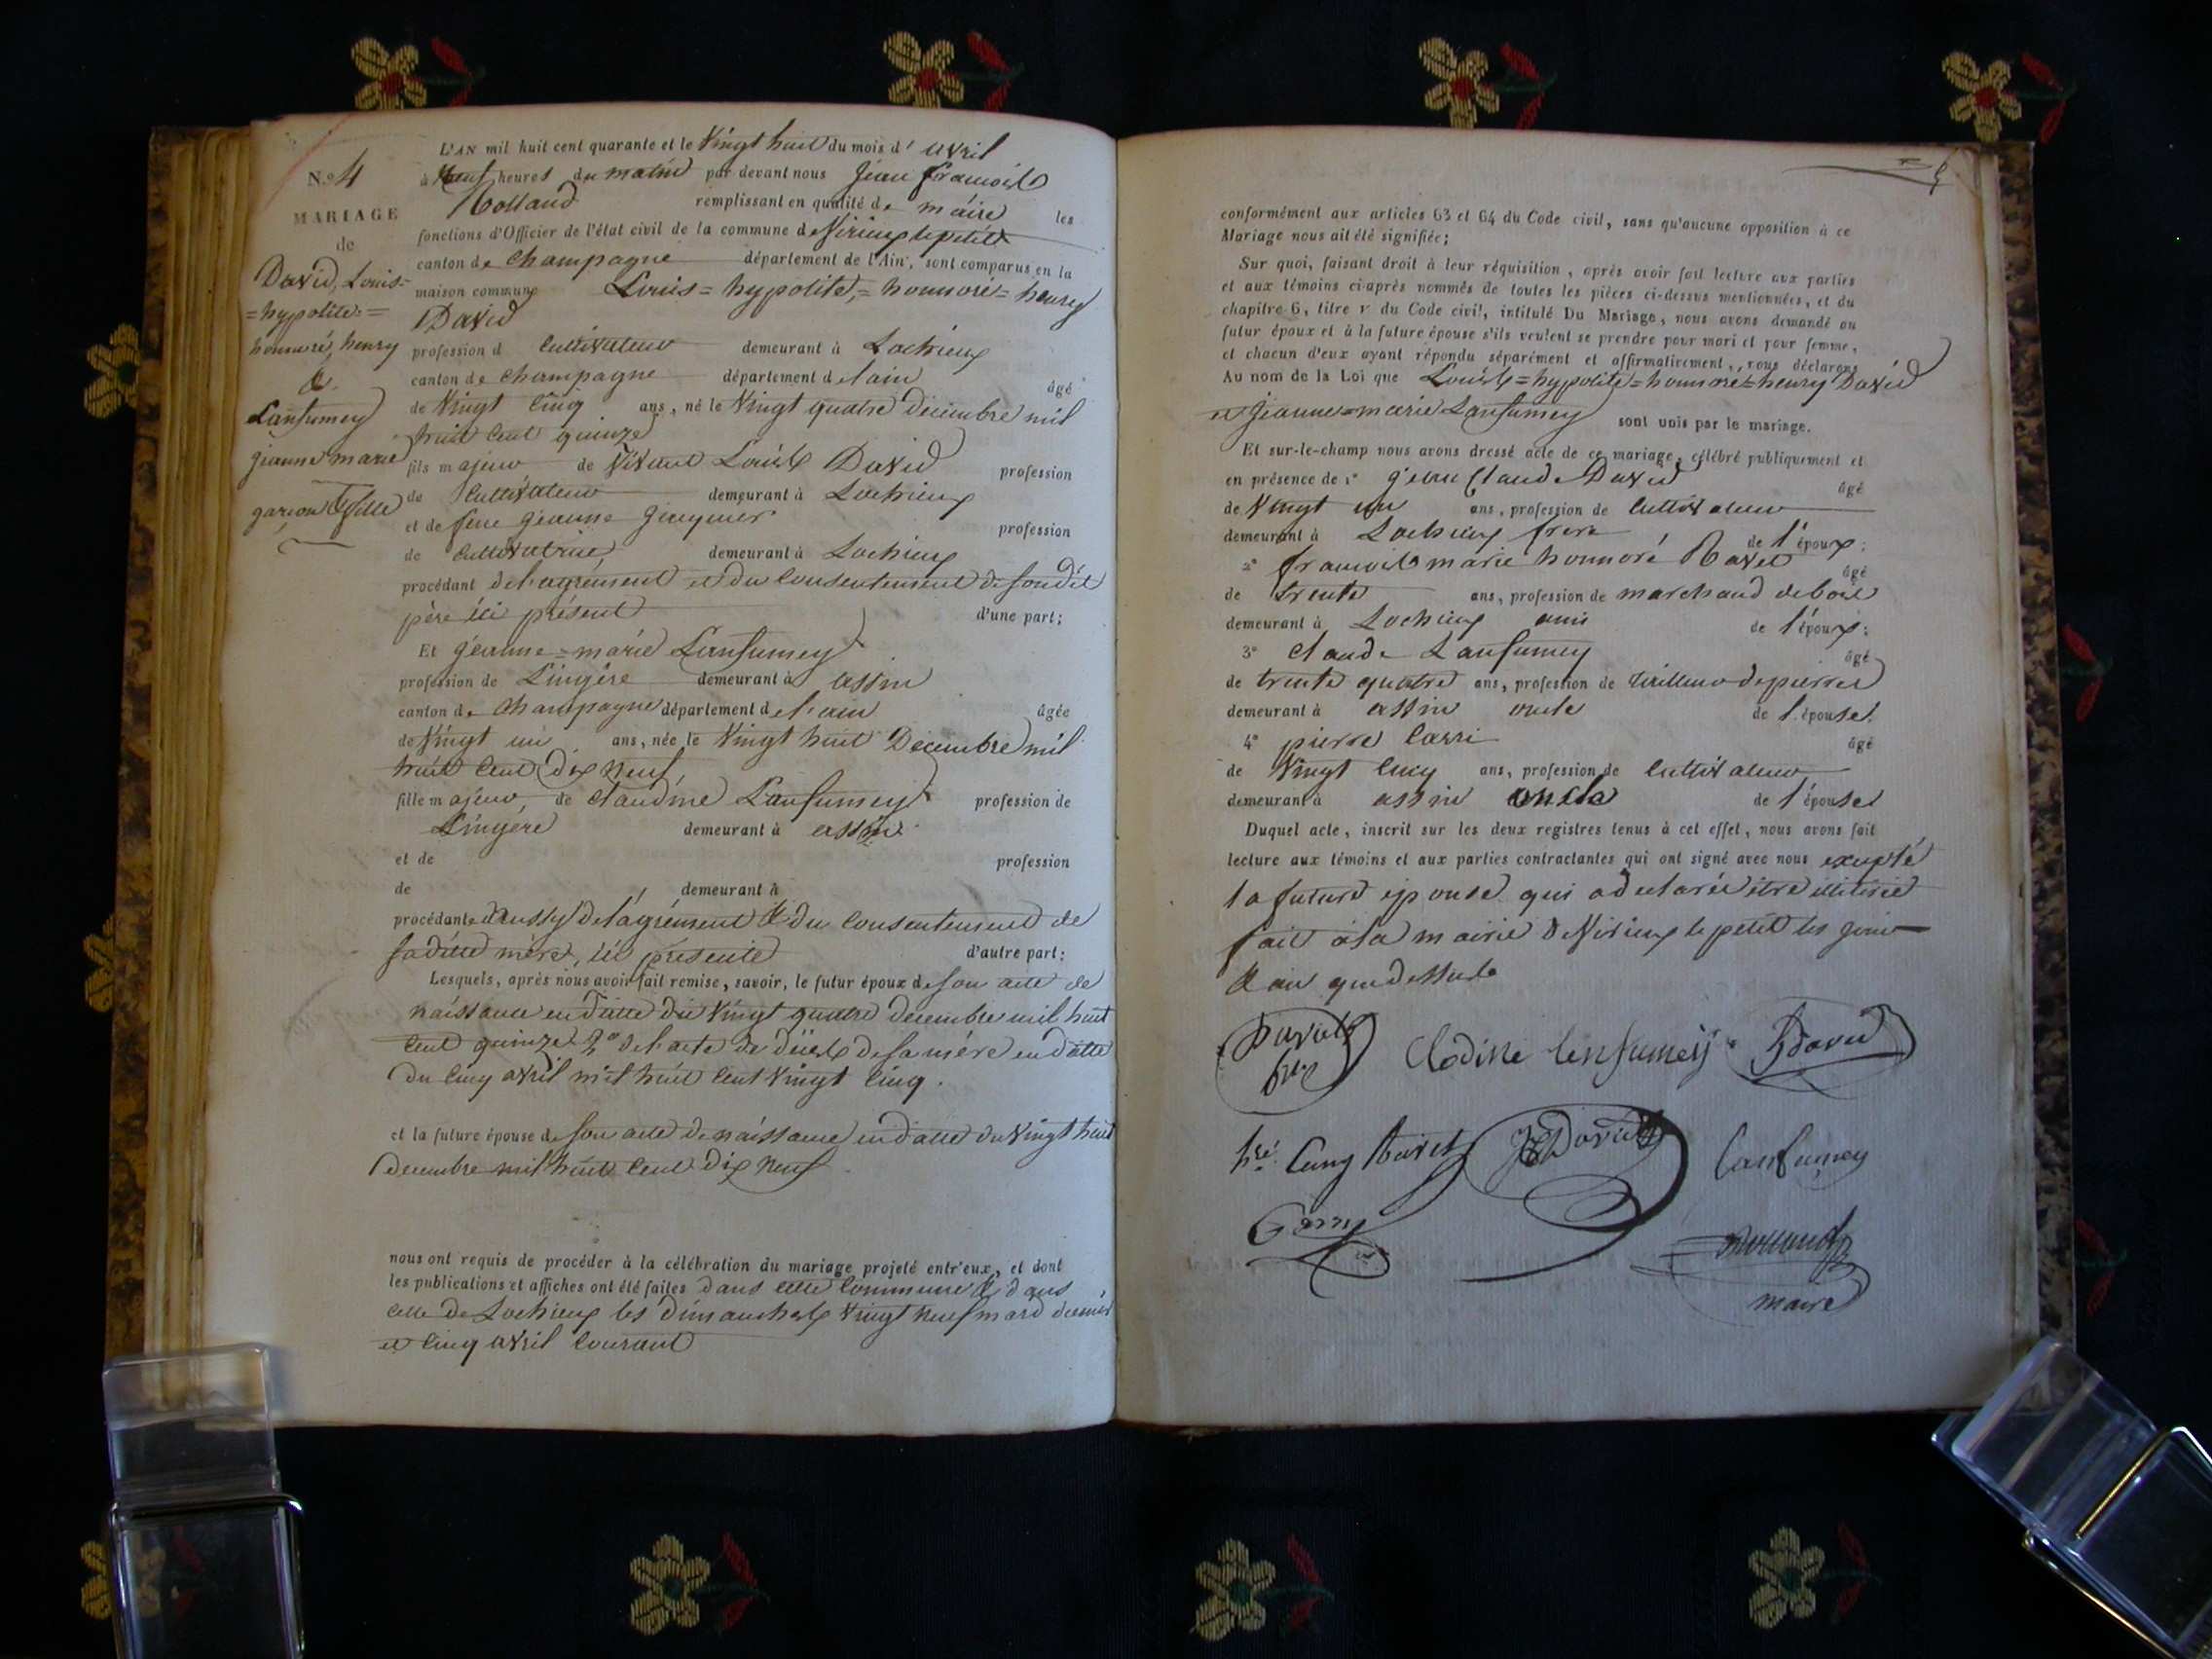 N.o 4
MARIAGE
de
David, Louis=
=hypolite=
honnoré, henry
&
Lansumey
jeanne marie
garcon & fille
L'AN mil huit cent quarante et le Vingt huit du mois d' avril
à Neuf heures du matin par devant nous jean francois
Rolland remplissant en qualité de maire les
fonctions d'Officier de l'état civil de la commune de Virieux le petit
canton de champagne département de l'Ain, sont comparus en la
maison commune Louis=hypolite,=honnoré=henry
David
profession d cultivateur demeurant à Lochieux
canton de champagne département de l'ain âgé
de Vingt cinq ans, né le Vingt quatre decembre mil
huit cent quinze
fils majeur de Vivant Louis David profession
de Cultivateur demeurant à Lochieux
et de feue jeanne profession
de cultivatrice demeurant à Lochieux
procédant de l'agrément et du consentement de son dit
père ici présent d'une part;
Et jeanne=marie Lansumey
profession de Lingère demeurant à assin
canton de Champagne département de l'ain âgée
de Vingt un ans, née le Vingt huit Decembre mil
huit cent dix neuf,
fille majeur, de claudine Lansumey profession de
Lingere demeurant à assin
et de profession
de demeurant à
procédante aussy de l'agrément & du consentement de
sa ditte mère, ici présente d'autre part;
Lesquels, après nous avoir fait remise, savoir, le futur époux de son acte de
naissance en datte du Vingt quatre decembre mil huit
cent quinze 2o de l'acte de décès de sa mère en datte
du cinq avril mil huit cent vingt cinq.
et la future épouse de son acte de naissance en datte du Vingt huit
decembre mil huit cent dix neuf
nous ont requis de procéder à la célébration du mariage projeté entr'eux, et dont
les publications et affiches ont été faites dans cette commune & dans
celle de Lochieux les dimanches Vingt neuf mars dernier
et cinq avril courant
conformément aux articles 63 et 64 du Code civil, sans qu'aucune opposition à ce
Mariage nous ait été signifiée;
Sur quoi, faisant droit à leur réquisition, après avoir fait lecture aux parties
et aux témoins ci-après nommés de toutes les pièces ci-dessus mentionnées, et du
chapitre 6, titre V du Code civil, intitulé Du Mariage, nous avons demandé au
futur époux et à la future épouse s'ils veulent se prendre pour mari et pour femme,
et chacun d'eux ayant répondu séparément et affirmativement, nous déclarons
Au nom de la Loi que Louis=hypolite=honnoré=henry David
et jeanne=marie Lansumey sont unis par le mariage.
Et sur-le-champ nous avons dressé acte de ce mariage, célébré publiquement et
en présence de 1° jean Claude David âgé
de Vingt un ans, profession de cultivateur
demeurant à Lochieux frere de l'époux;
2° francois marie honnoré Ravet âgé
de trente ans, profession de marchand de bois
demeurant à Lochieux ami de l'époux;
3° claude Lansumey âgé
de trente quatre ans, profession de tailleur de pierres
demeurant à assin oncle de l'épouse;
4° pierre Carri âgé
de Vingt cinq ans, profession de cultivateur
demeurant à assin oncle de l'épouse
Duquel acte, inscrit sur les deux registres tenus à cet effet, nous avons fait
lecture aux témoins et aux parties contractantes qui ont signé avec nous exepté
la future epouse qui a déclarée être illitirée
fait à la mairie de Virieux le petit les jour
& an que dessus
David
Clodine lensumeij
David
Ravet
David
Lansumey
Rolland
maire